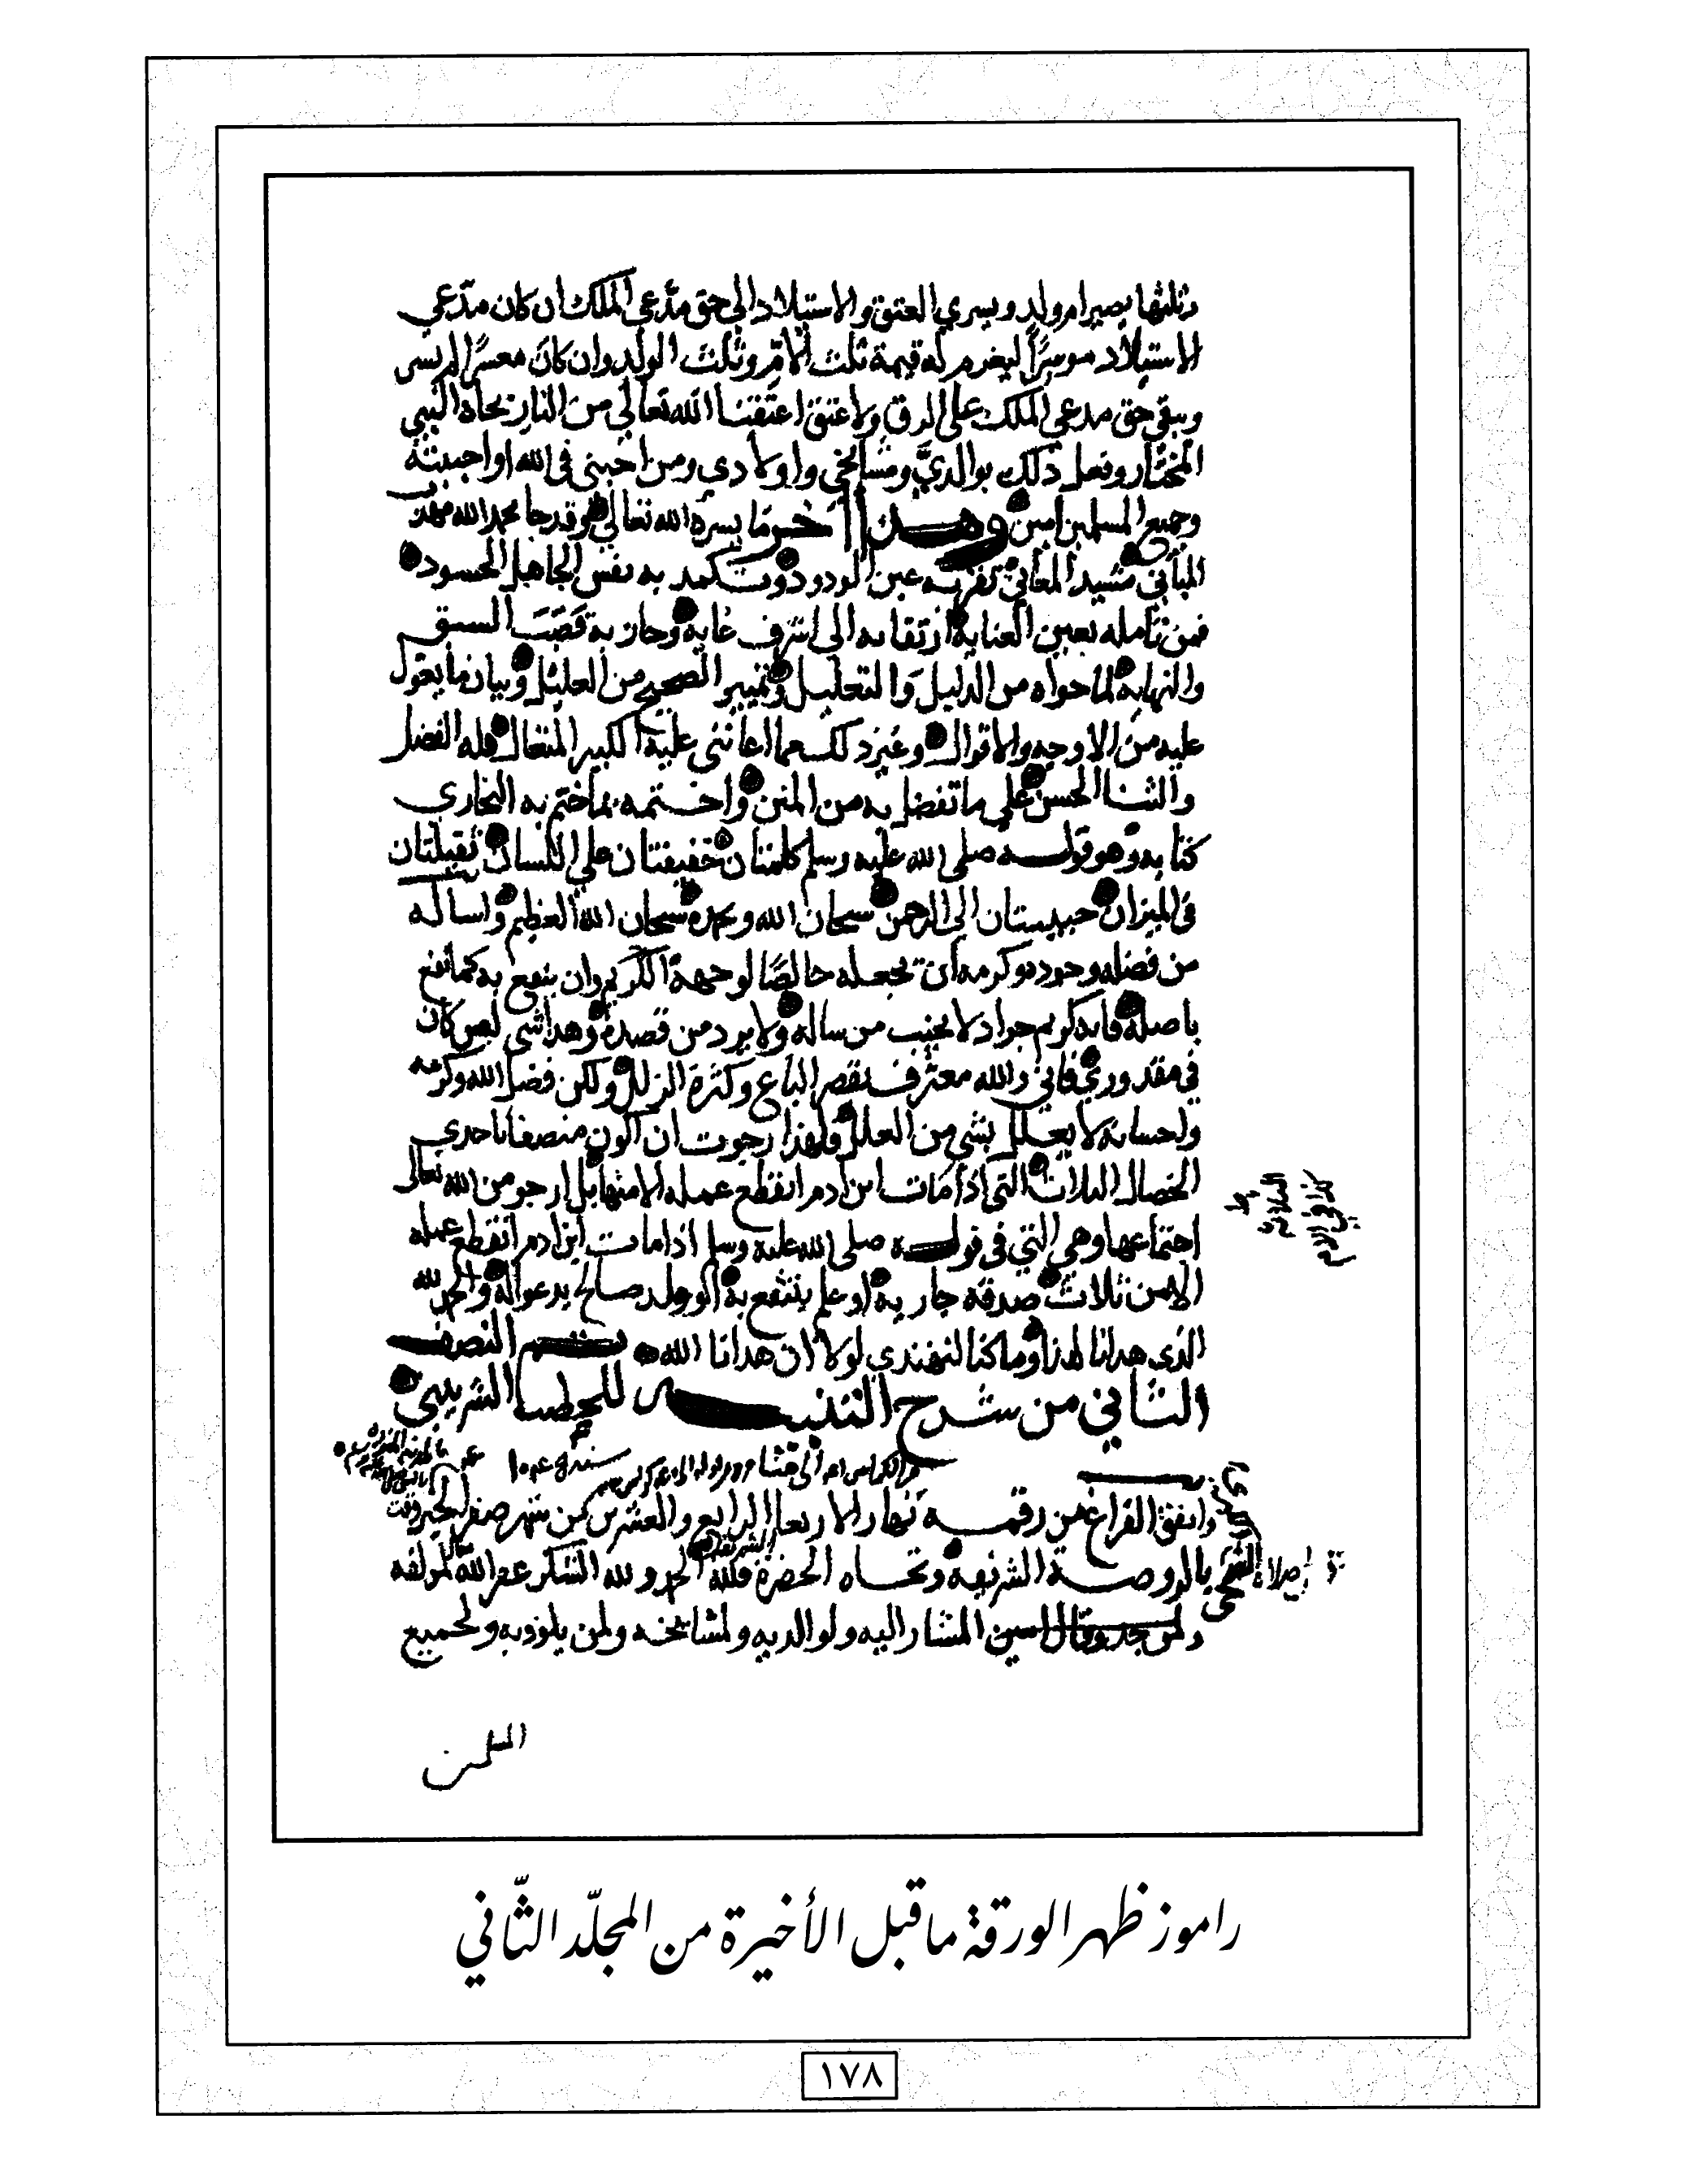 وثلثها يصير ام ولد ويسري العتق والاستيلاد الي حق مدّعي الملك ان كان مدّعي
الاستيلاد موسرًا ليغرم له قيمة ثلث الامّ وثلث الولد وان كان معسرًا لم يسر
ويبقي حق مدعي الملك علي الرق ولا عتق اعتقنا الله تعالي من النار بجاه النبي
المختار وفعل ذلك بوالديَّ ومشايخي واولادي ومن احبني في الله او احببته
وجميع المسلمين امين وهذا اخر ما يسره الله تعالي وقد جا بحمد الله مهذب
المباني مشيد المعاني تقر به عين الودود وتكمد به نفس الجاهل الحسود
فمن تامله بعين العناية ارتقا به الي اشرف غاية وحاز به قصَبَ السبق
والنهاية لما حواه من الدليل والتعليل وتمييز الصحيح من العليل وبيان ما يعول
عليه من الاوجه والاقوال وغير ذلك مما اعانني عليه الكبير المتعال فله الفضل
والثنا الحسن علي ما تفضل به من المنن واختمه بما ختم به البخاري
كتابه وهو قوله صلي الله عليه وسلم كلمتان خفيفتان علي اللسان ثقيلتان
في الميزان حبيبتان الي الرحمن سبحان الله وبحمده سبحان الله العظيم واساله
من فضله وجوده وكرمه ان يجعله خالصًا لوجهه الكريم وان ينفع به كما نفع
باصله فانه كريم جواد لا يخيب من ساله ولا يرد من قصده وهذا شي ليس كان
في مقدوري فاني والله معترف بقصر الباع وكثرة الزلل ولكن فضل الله وكرمه
واحسانه لا يعلل بشي من العلل ولهذا رجوت ان اكون متصفا باحدي
الخصال الثلاث التي اذا مات ابن ادم انقطع عمله الا منها بل ارجو من الله تعالي
اجتماعها وهي التي في قوله صلي الله عليه وسلم اذا مات ابن ادم انقطع عمله
الا من ثلاث صدقة جارية او علم ينتفع به او ولد صالح يدعوا له والحمد لله
الذي هدانا لهذا وما كنا لنهتدي لولا ان هدانا الله تم النصف
الثاني من شرح التنبيه للخطيب الشربيني
واتفق الفراغ من رقمه نهار الاربعا الرابع والعشرين من شهر صفر الخير وقت
الضحي بالروضة الشريفة وتجاه الحضرة فلله الحمد ولله الشكر غفر الله لمؤلفه
المشار اليه ولوالديه ولمشايخه ولمن يلوذ به ولجميع
المسلمين
راموز ظهر الورقة ما قبل الأخيرة من المجلّد الثّاني
١٧٨